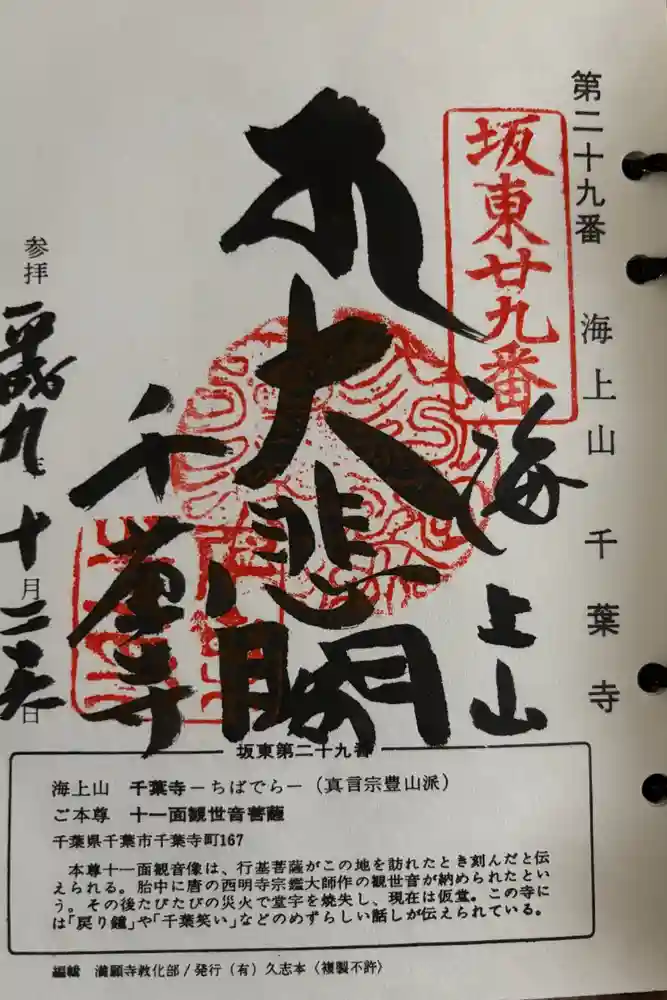 第二十九番 海上山 千葉寺
坂東廿九番
海上山
大悲閣
千葉寺
参拝
平成九年十月二六日
坂東第二十九番
海上山 千葉寺－ちばでら－（真言宗豊山派）
ご本尊 十一面観世音菩薩
千葉県千葉市千葉寺町167
本尊十一面観音像は、行基菩薩がこの地を訪れたとき刻んだと伝
えられる。胎中に唐の西明寺宗鑑大師作の観世音が納められたとい
う。その後たびたびの災火で堂字を焼失し、現在は仮堂。この寺に
は「戻り鐘」や「千葉笑い」などのめずらしい話しが伝えられている。
編輯 満願寺教化部/発行（有）久志本〈複製不許〉